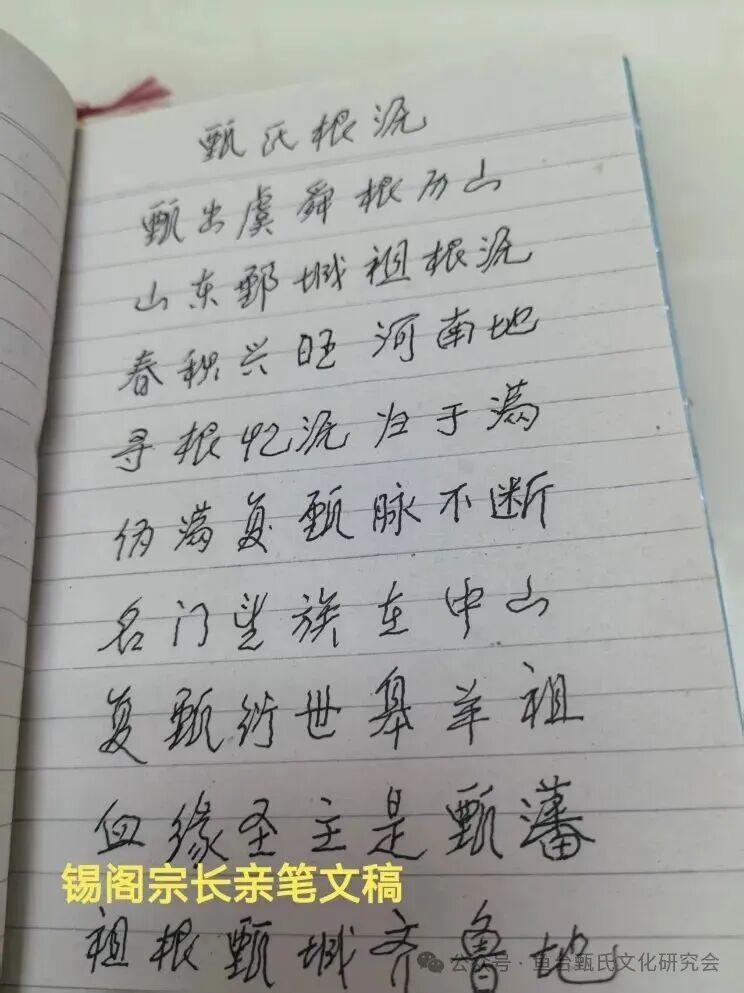 甄氏根源
甄出虞舜根历山
山东鄄城祖根源
春秋兴旺河南地
寻根忆源归于满
伪满复甄脉不断
名门望族在中山
复甄衍世皋羊祖
血缘圣主是甄藩
锡阁宗长亲笔文稿
祖根甄城齐鲁地
公众号·鱼台甄氏文化研究会